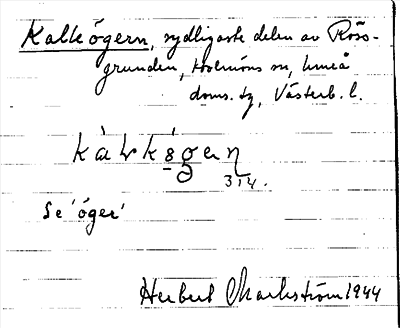 Kalleögern, sydligaste delen av Röss-
grunden, Holmöns sn, Umeå
doms. tg, Västerb. l.
314.
Se 'öger'
Herbert Markström 1944